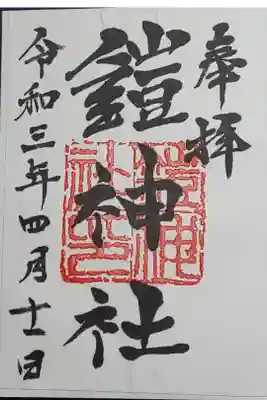 奉拝
鎧神社
令和三年四月十一日